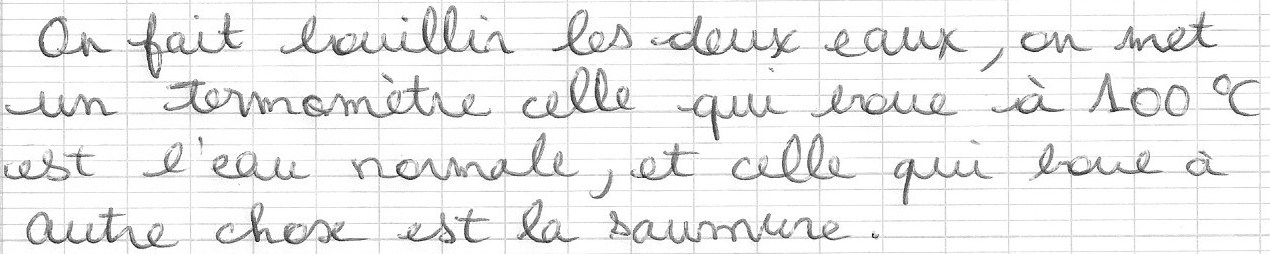 On fait bouillir les deux eaux, on met
un termomètre celle qui boue à 100 °C
est l'eau normale, et celle qui boue à
autre chose est la saumure.